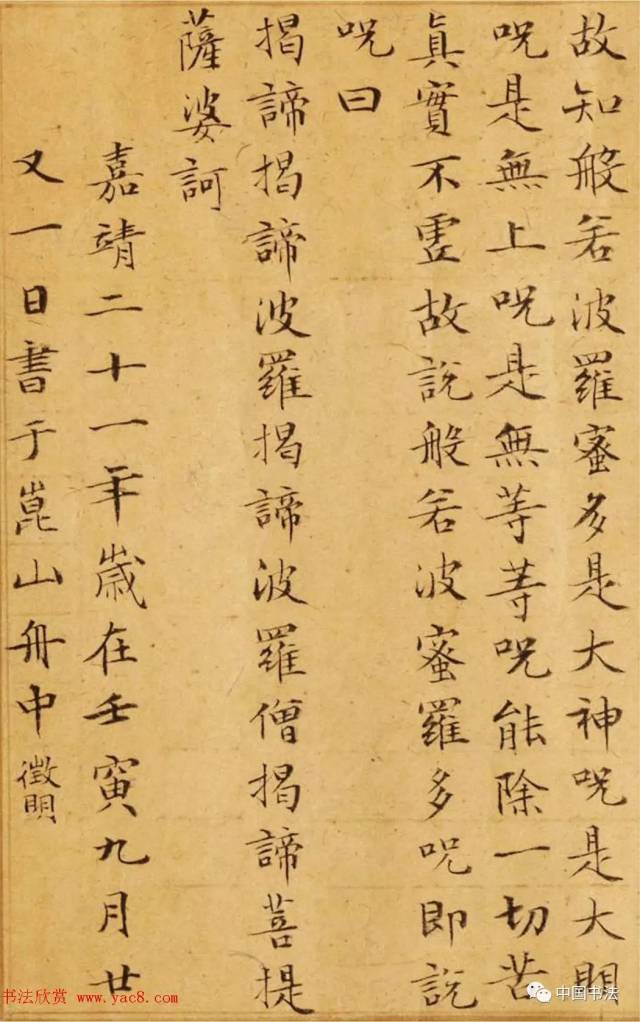 故知般若波羅蜜多是大神呪是大明
呪是無上呪是無等等呪能除一切苦
眞實不虛故說般若波蜜羅多呪即說
呪曰
揭諦揭諦波羅揭諦波羅僧揭諦菩提
薩婆訶
嘉靖二十一年歲在壬寅九月廿
又一日書于崑山舟中徵明
书法欣赏 www.yac8.com
中国书法